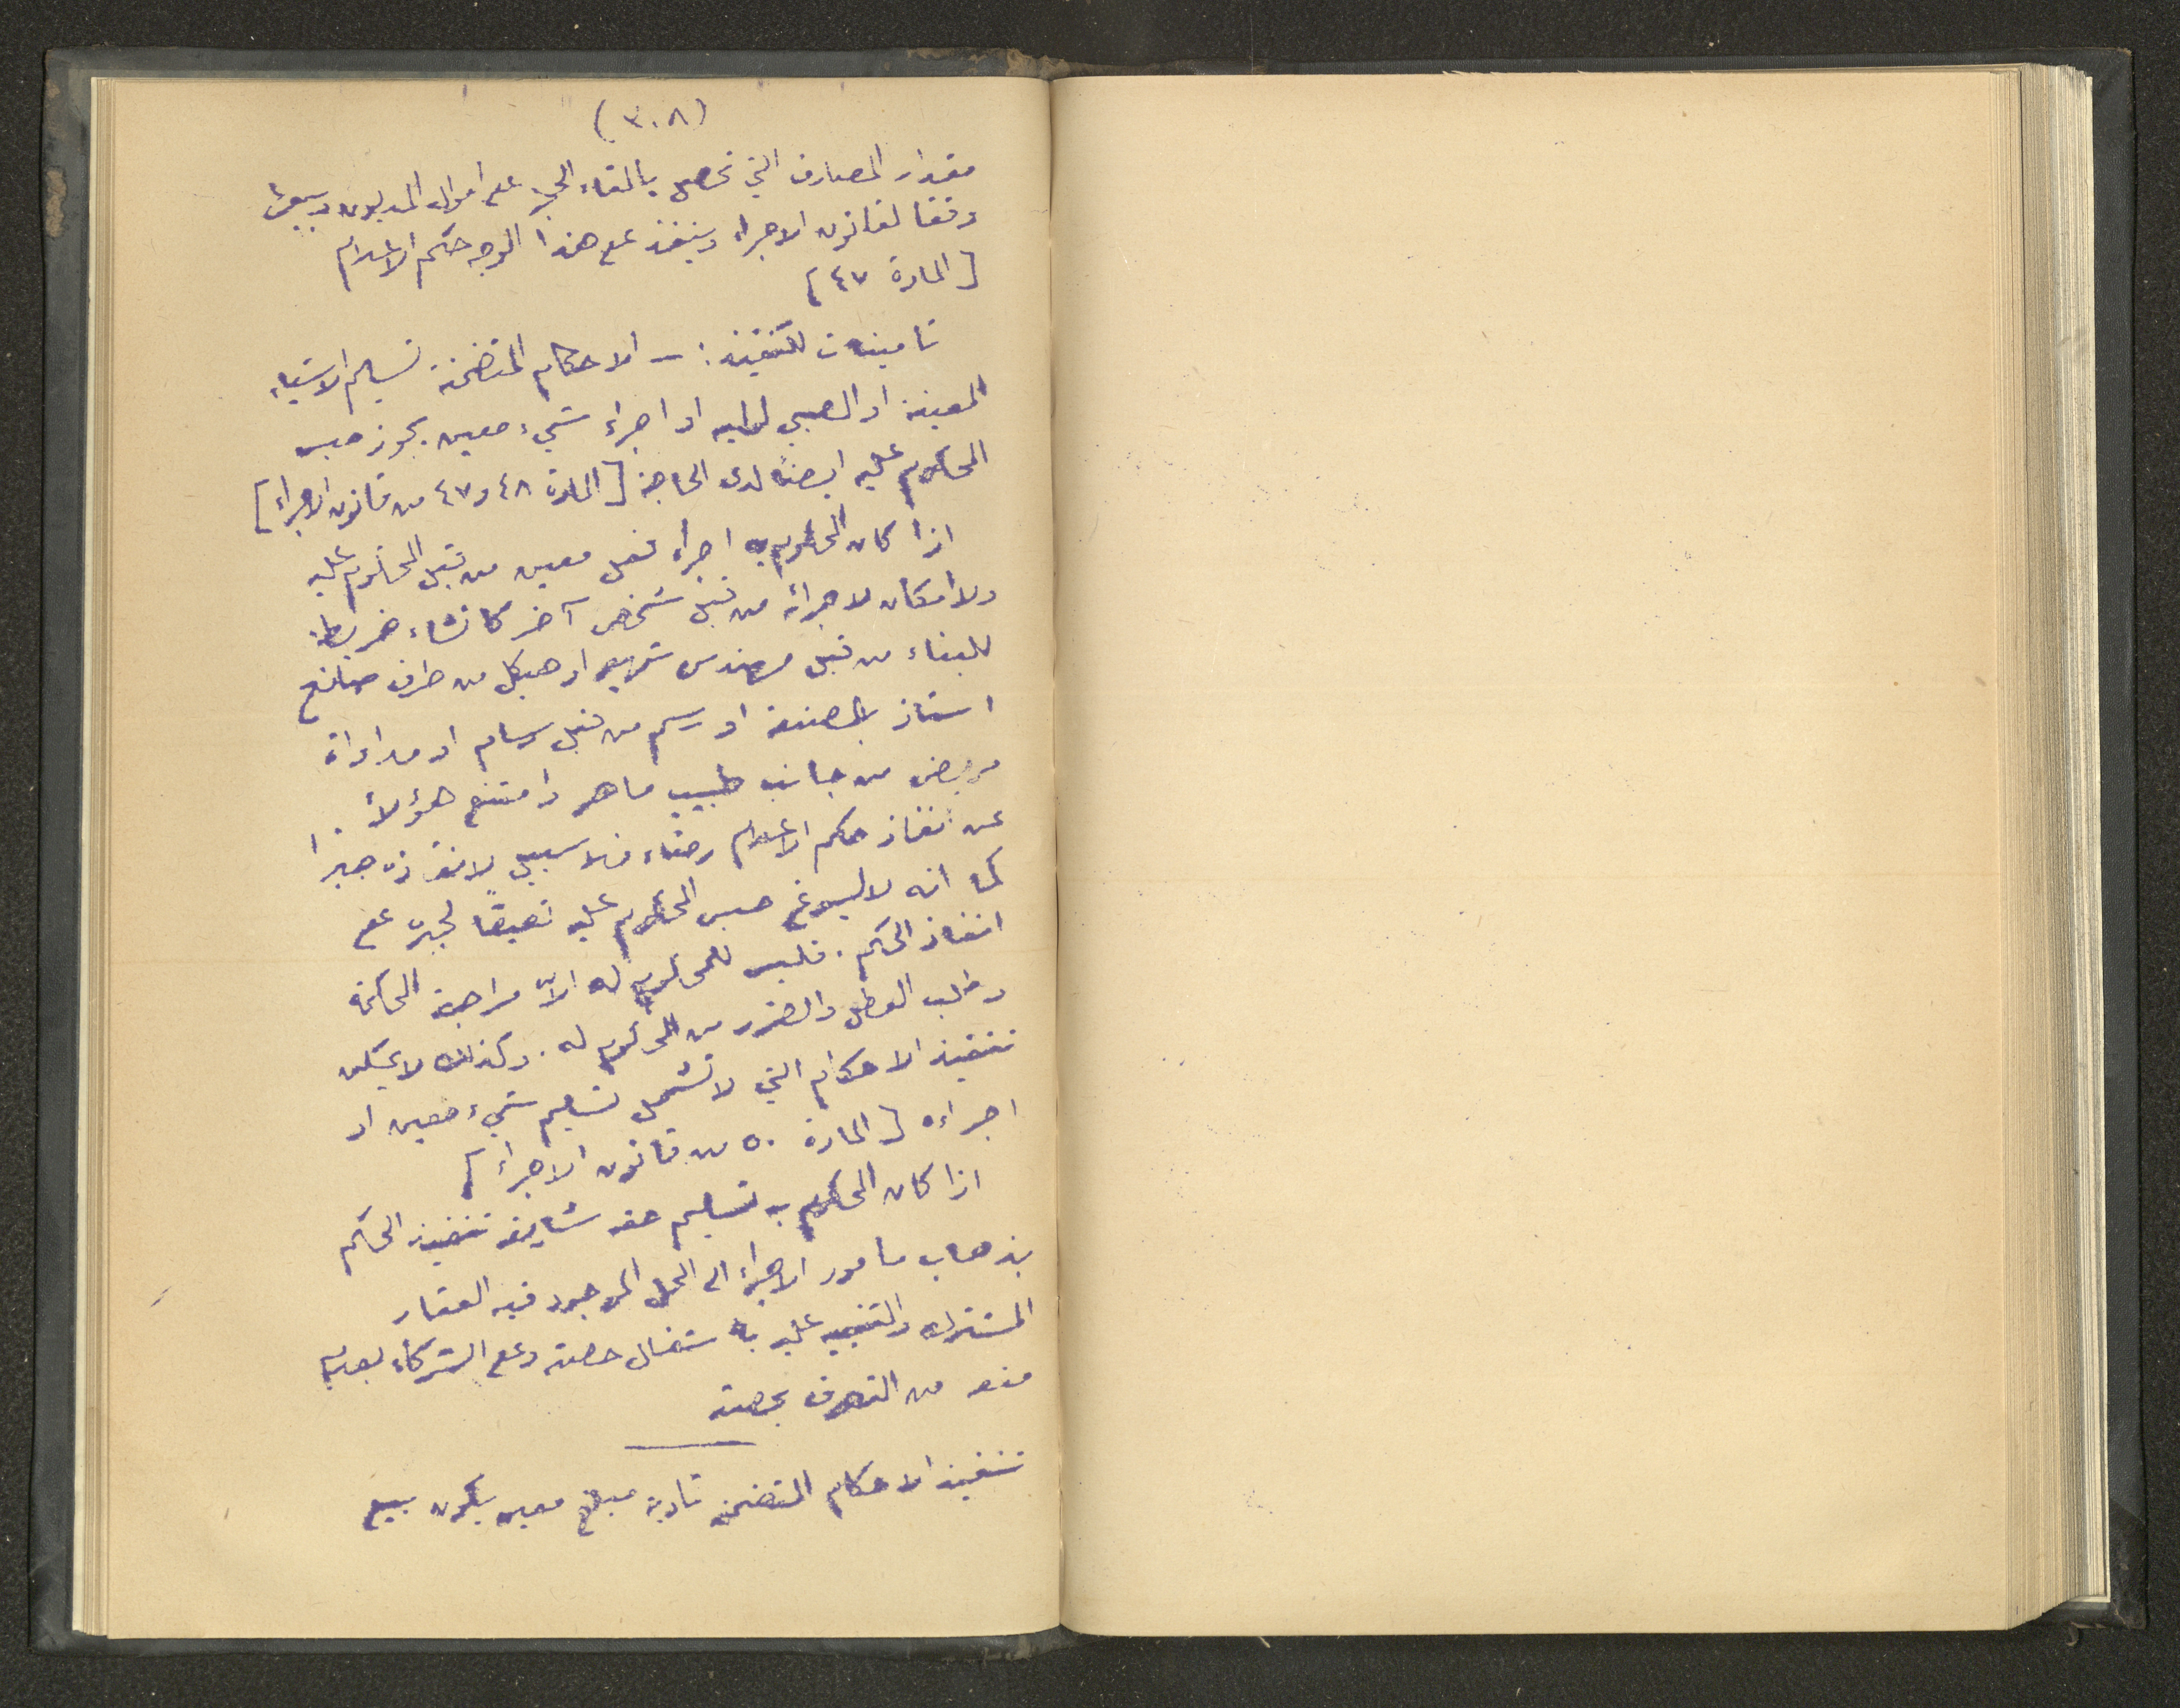 (٣٠٨)
مقدار المصارف التي تحصل بالقاء الحجز على اموال المديون وبيعها
وفقا لقانون الاجراء وينفذ على هذا الوجه حكم الاعلام
[المادة ٤٧]
تامينات للتنفيذ : ـ الاحكام المتضمنة تسليم الاشياء
المعينة او الصبي لوليه او اجراء شيء معين يجوز حبس
المحكوم عليه ايضاً لدى الحاجة [المادة ٤٨ و ٤٧ من قانون الاجراء]
اذا كان المحكوم به اجراء فعل معين من قبل المحكوم عليه
ولا امكان لاجرائه من قبل شخص آخر كانشاء خريطة
للبناء من قبل مهندس شهير او هيكل من طرف صانع
استاذ بالصنعة او رسم من قبل رسام او مداواة
مريض من جانب طبيب ماهر وامتنع هؤلاء
عن انفاذ حكم الاعلام رضاء فلا سبيل لانفاذه جبرا
كما انه لا يسوغ حبس المحكوم عليه تضييقا لجبره على
انفاذ الحكم . فليس للمحكوم له الاّ مراجعة المحكمة
وطلب العطل والضرر من المحكوم له . وكذلك لا يمكن
تنفيذ الاحكام التي لا تشمل تسليم شيء معين او
اجراءه [المادة ٥٠ من قانون الاجراء]
اذا كان المحكوم به تسليم حصة شايعة تنفيذ الحكم
بذهاب مامور الاجراء الى المحل الموجود فيه العقار
المشترك والتنبيه عليه باشغال حصته وعلى الشركاء بعدم
منعه من التصرف بحصته
تنفيذ الاحكام المتضمنة تادية مبلغ معين يكون ببيع